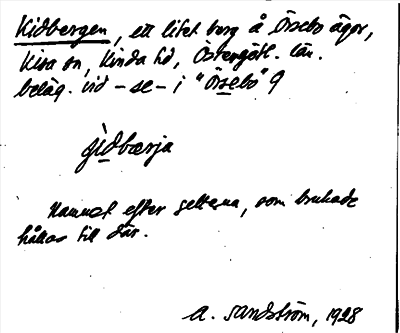 Kidbergen, ett litet berg å Örsebo ägor,
Kisa sn, Kinda hd, Östergötl. län.
beläg. vid – se – i "Örsebo" 9
jìdbærja
Namnet efter getterna, som brukade
hållas till där.
A. Sandström, 1928